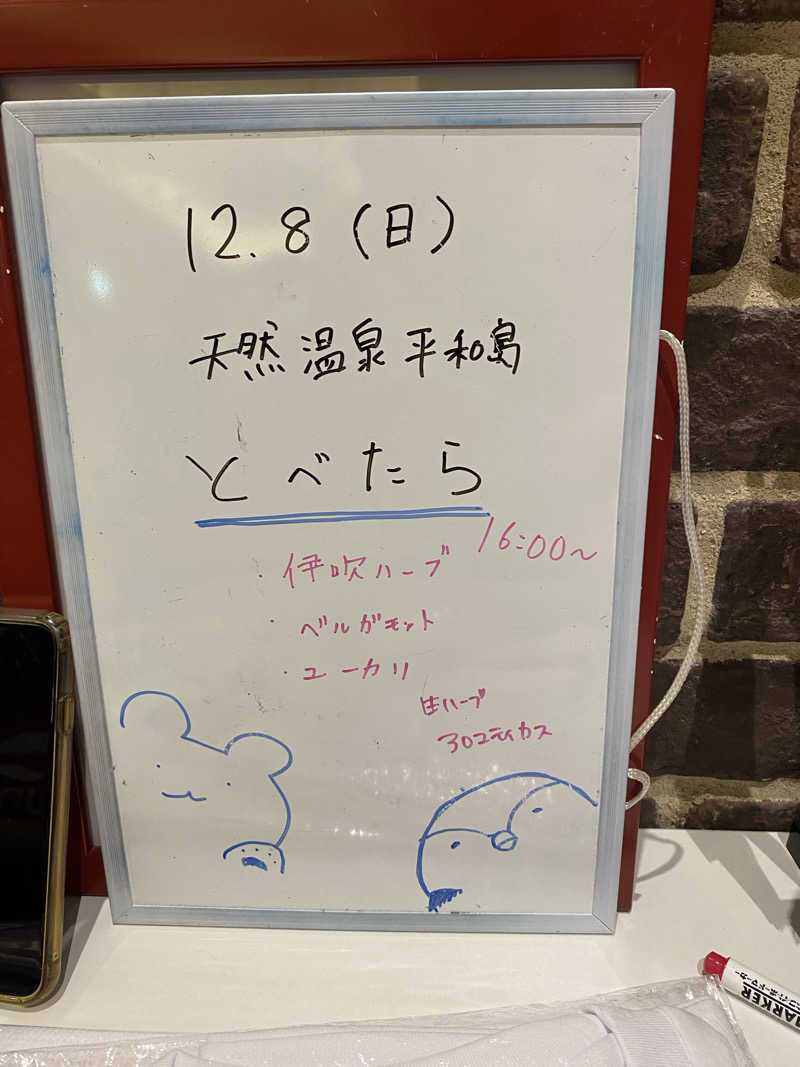 12.8(日)
天然温泉平和島
とべたら
16:00〜
・伊吹ハーブ
・ベルガモット
・ユーカリ
生ハーブ
MARKER